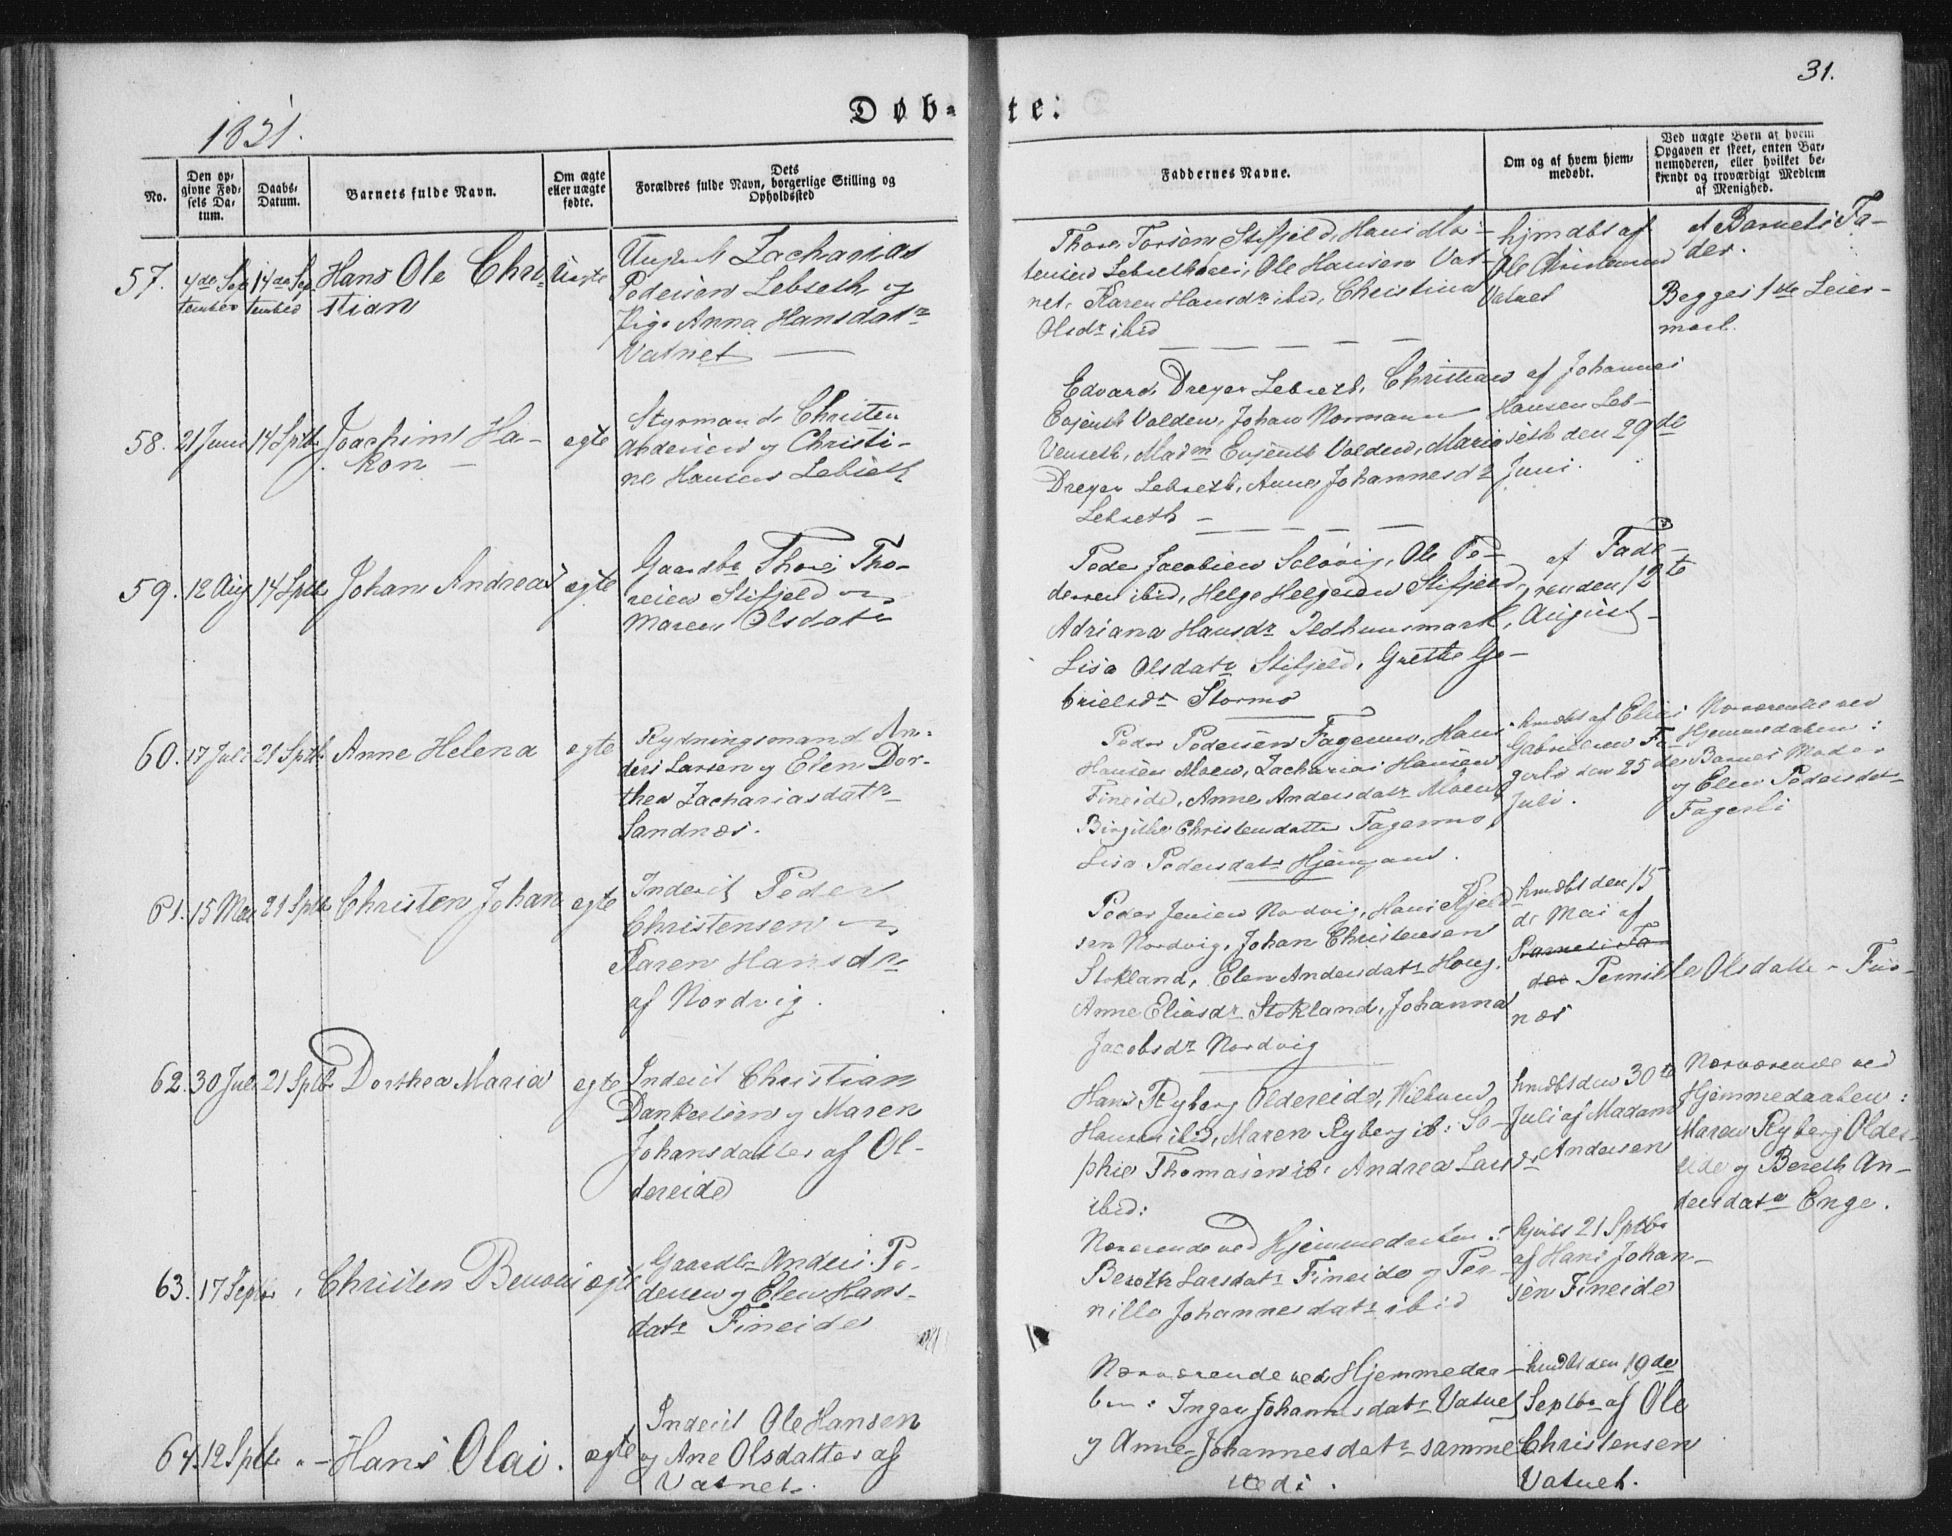 31.
Døb-te.
1831.
No.
Den op-
givne Fød-
sels Da-
tum.
Daabs-
Datum.
Barnets fulde Navn.
Om ægte
eller uægte
fødte.
Dets
Forældres fulde Navn, borgerlige Stilling og
Opholdssted
Faddernes Navne.
Om og af hvem hjem-
medøbt.
Ved uægte Børn af hvem
Opgaven er skeet, enten Bar-
nemoderen, eller hvilket be-
kjendt og troværdigt Medlem
af Menighed.
57.
4de Sep
tember
14de Sep
tember
Hans Ole Chri-
stian
uægte
Ungk. Zacharias
Pedersen Lebseth og
Pige Anna Hansdatr
Vatnet
Thore Torsen Stifjeld, Hans Mor-
tensen Lebseth, Ole Hansen Vat-
net, Karen Hansdr ibid, Christina
Olsdr ibid
hjmdbt af
Ole Christensen
Vatnet
af Barnets Fa-
der.
Begges 1ste Leier-
maal.
58.
21 Juni
14 Sptb
Joachim Ha-
kon
egte
Styrmand Christen
Andersen og Christi-
ne Hansen Lebseth
Edvard Dreyer Lebseth, Christian
Evjenth Valden, Johan Normann
Venseth, Madm Evjenth Valden, Maria
Dreyer Lebseth, Anne Johannesdr
Lebseth
af Johannes
Hansen Leb-
seth den 29de
Juni.
59.
12 Aug
14 Sptb
Johan Andreas
egte
Gaardbr Thore Tho-
resen Stifjeld og
Maren Olsdatr
Peder Jacobsen Soløvig, Ole Pe-
dersen ibid, Helge Helgesen Stifjeld,
Adriana Hansdr Ildhuusmark,
Lisa Olsdatr Stifjeld, Grethe Ga-
brielsdr Stormo
af Fade-
ren den 12te
August
60.
17 Juli
21 Sptb
Anne Helena
egte
Rydningsmand An-
ders Larsen og Elen Dor-
thea Zachariasdatr
Sandnæs.
Peder Pedersen Fagermo, Hans
Hansen Moen, Zacharias Hansen
Fineide, Anne Andersdatr Moen,
Birgithe Christensdatter Fagermo,
Lisa Pedersdatr Hjemgam.
hmdbt af Elias
Gabrielsen Fa-
gerli den 25de
Juli.
Nærværende ved
Hjemmedaaben:
Barnets Moder
og Elen Pedersdatr
Fagerli
61.
15 Mai
21 Sptb
Christen Johan
egte
Inderst Peder
Christensen og
Karen Hansdr
af Nordvig.
Peder Jensen Nordvig, Hans Kjeld-
sen Nordvig, Johan Christensen
Stokland, Elen Andersdatr Houg,
Anne Eliasdr Stokland, Johanna
Jacobsdr Nordvig
hmdbt den 15
de Mai af
Barnets Fa-
der Pernille Olsdatter Fur-
næs
62.
30 Juli
21 Sptb
Dorthea Maria
egte
Inderst Christian
Dankertsen og Maren
Johansdatter af Ol-
dereide
Hans Ryberg Oldereide, Willum
Hansen ibid, Maren Ryberg ib: So-
phie Thomasen ib: Andrea Larsdr
ibid:
hmdbt den 30te
Juli af Madam
Andersen
Nærværende ved
Hjemmedaaben:
Maren Ryberg Older-
eide og Bereth An-
dersdatr Enge.
63.
17 Septbr
Christen Benoni
egte
Gaardbr Anders Pe-
dersen og Elen Hans-
datr Fineide
Nærværende ved Hjemmedaaben:
Bereth Larsdatr Fineide og Per-
nille Johannesdatr ibid
hjmdt 21 Sptbr
af Hans Johan-
sen Fineide
64.
12 Sptbr
Hans Olai.
egte
Inderst Ole Hansen
og Ane Olsdatter af
Vatnet.
Nærværende ved Hjemmedaa-
ben: Inger Johannesdatr Vatnet
og Anne Johannesdatr samme-
steds.
hmdbt den 19de
Septbr af Ole
Christensen
Vatnet.